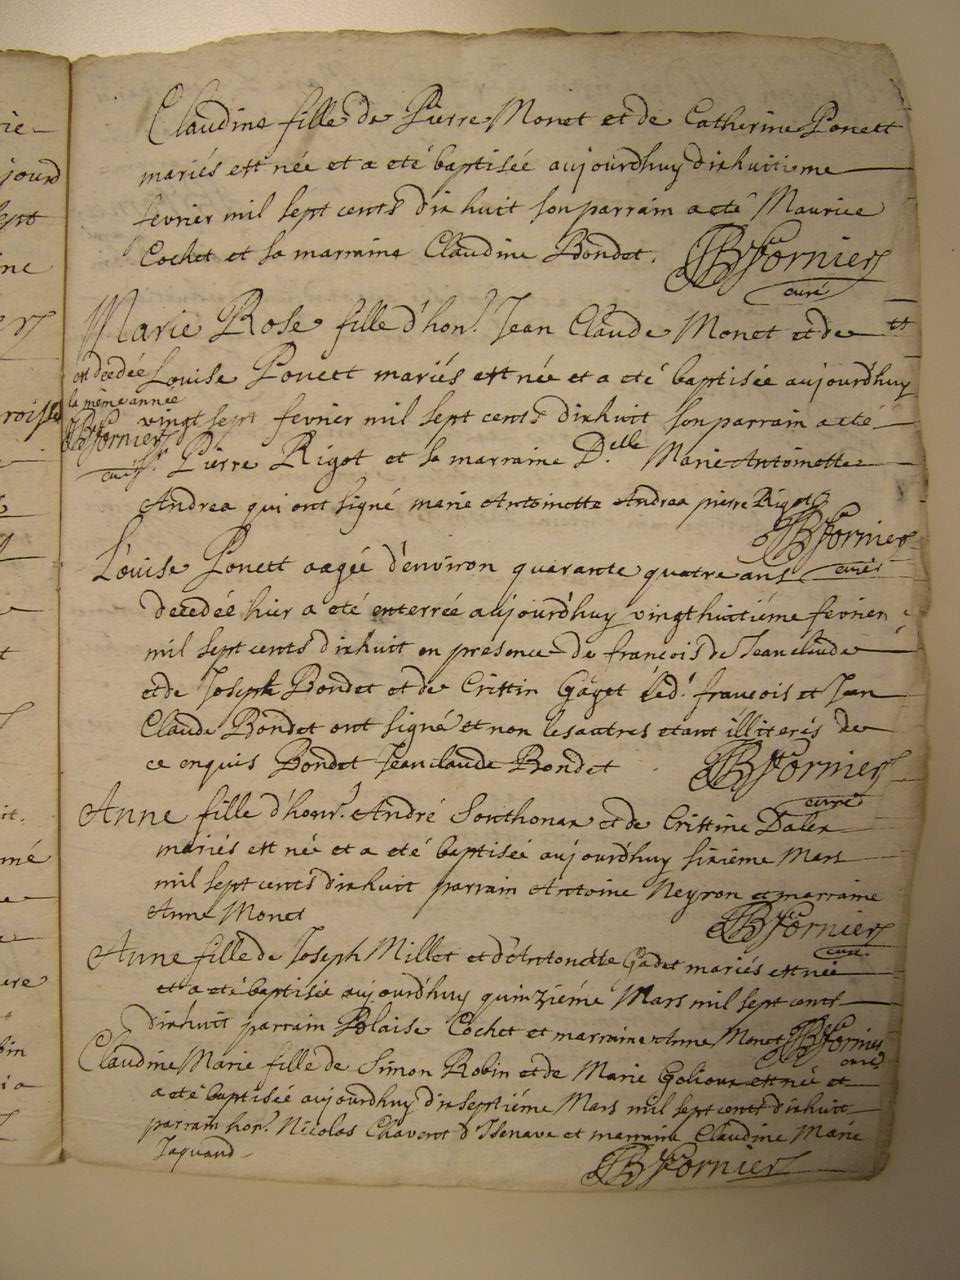 Claudine fille de Pierre Monet et de Catherine Ponett
mariés est née et a eté baptisée aujourdhuy dixhuitieme
fevrier mil sept cents dix huit son parrain a eté Maurice
Cochet et sa marraine Claudine Bondet. JB Fornier
curé
Marie Rose fille d'hon.ᵗ Jean Claude Monet et de ᵗᵗ
est decedée Louise Ponett mariés est née et a eté baptisée aujourdhuy
la même année
vingt sept fevrier mil sept cents dixhuit son parrain a eté
JB Fornier
curé
Sr Pierre Rigot et sa marraine D.elle Marie Antoinette
Andrea qui ont signé marie Antoinette Andrea pierre Rigot
JB Fornier
curé
Louise Ponett aagée d'environ quarante quatre ans
decedée hier a eté enterrée aujourd'huy vingthuitiéme fevrier
mil sept cents dixhuit en presence de francois de Jeanclaude
et de Joseph Bondet et de Cristin Gayet led.ᵗ francois et Jean
Claude Bondet ont signé et non les autres etant illiterés de
ce enquis Bondet Jeanclaude Bondet JB Fornier
curé
Anne fille d'honr.ᵗ André Sonthonax et de Cristine Dalex
mariés est né et a eté baptisée aujourdhuy sixiéme Mars
mil sept cents dixhuit parrain Antoine Neyron et marraine
Anne Monet JB Fornier
curé
Anne fille de Joseph Millet et d'Antonette Gadet mariés est née
et a eté baptisée aujourd'huy quinziéme Mars mil sept cents
dixhuit parrain Blaise Cochet et marraine Anne Monet JB Fornier
curé
Claudine Marie fille de Simon Robin et de Marie est né et
a eté baptisée aujourdhuy dixseptiéme Mars mil sept cents dixhuit
parrain hon.ᵗ Nicolas Chavent d'Isenave et marraine Claudine Marie
Jaquand JB Fornier